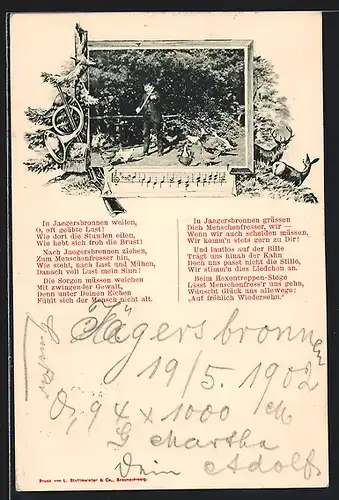 In Jaegersbronnen weilen,
O, oft geübte Lust!
Wie dort die Stunden eilen,
Wie hebt sich froh die Brust!
Nach Jaegersbronnen ziehen,
Zum Menschenfresser hin,
Wie steht, nach Last und Mühen,
Danach voll Lust mein Sinn!
Die Sorgen müssen weichen
Mit zwingender Gewalt,
Denn unter Deinen Eichen
Fühlt sich der Mensch nicht alt.
In Jaegersbronnen grüssen
Dich Menschenfresser, wir —
Wenn wir auch scheiden müssen,
Wir komm'n stets gern zu Dir!
Und lautlos auf der Bille
Trägt uns hinab der Kahn
Doch uns passt nicht die Stille,
Wir stimm'n dies Liedchen an.
Beim Hexentreppen-Stege
Lässt Menschenfress'r uns gehn,
Wünscht Glück uns allewege:
„Auf fröhlich Wiedersehn.“
Jägersbronnen
19/5. 1902
94 x 1000
Martha
Dein Adolf
Druck von L. Stottmeister & Co., Braunschweig.